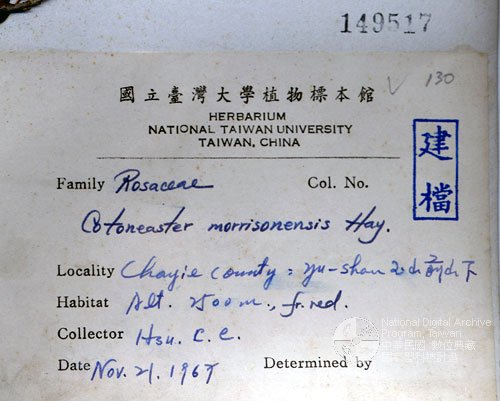 149517
130
國立臺灣大學植物標本館
HERBARIUM
NATIONAL TAIWAN UNIVERSITY
TAIWAN, CHINA
建檔
Family Rosaceae Col. No.
Cotoneaster morrisonensis Hay.
Locality Chayie County: Yu-shan 玉山前山下
Habitat Alt. 2500 m., fr. red.
Collector Hsu. C. C.
Date Nov. 21. 1967 Determined by
National Digital Archive
Program, Taiwan
中華民國 數位典藏
國家型科技計畫